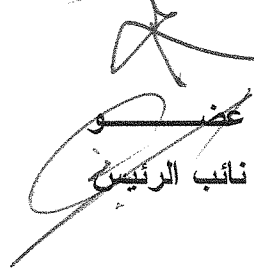 عضـــــــو
نائب الرئيس